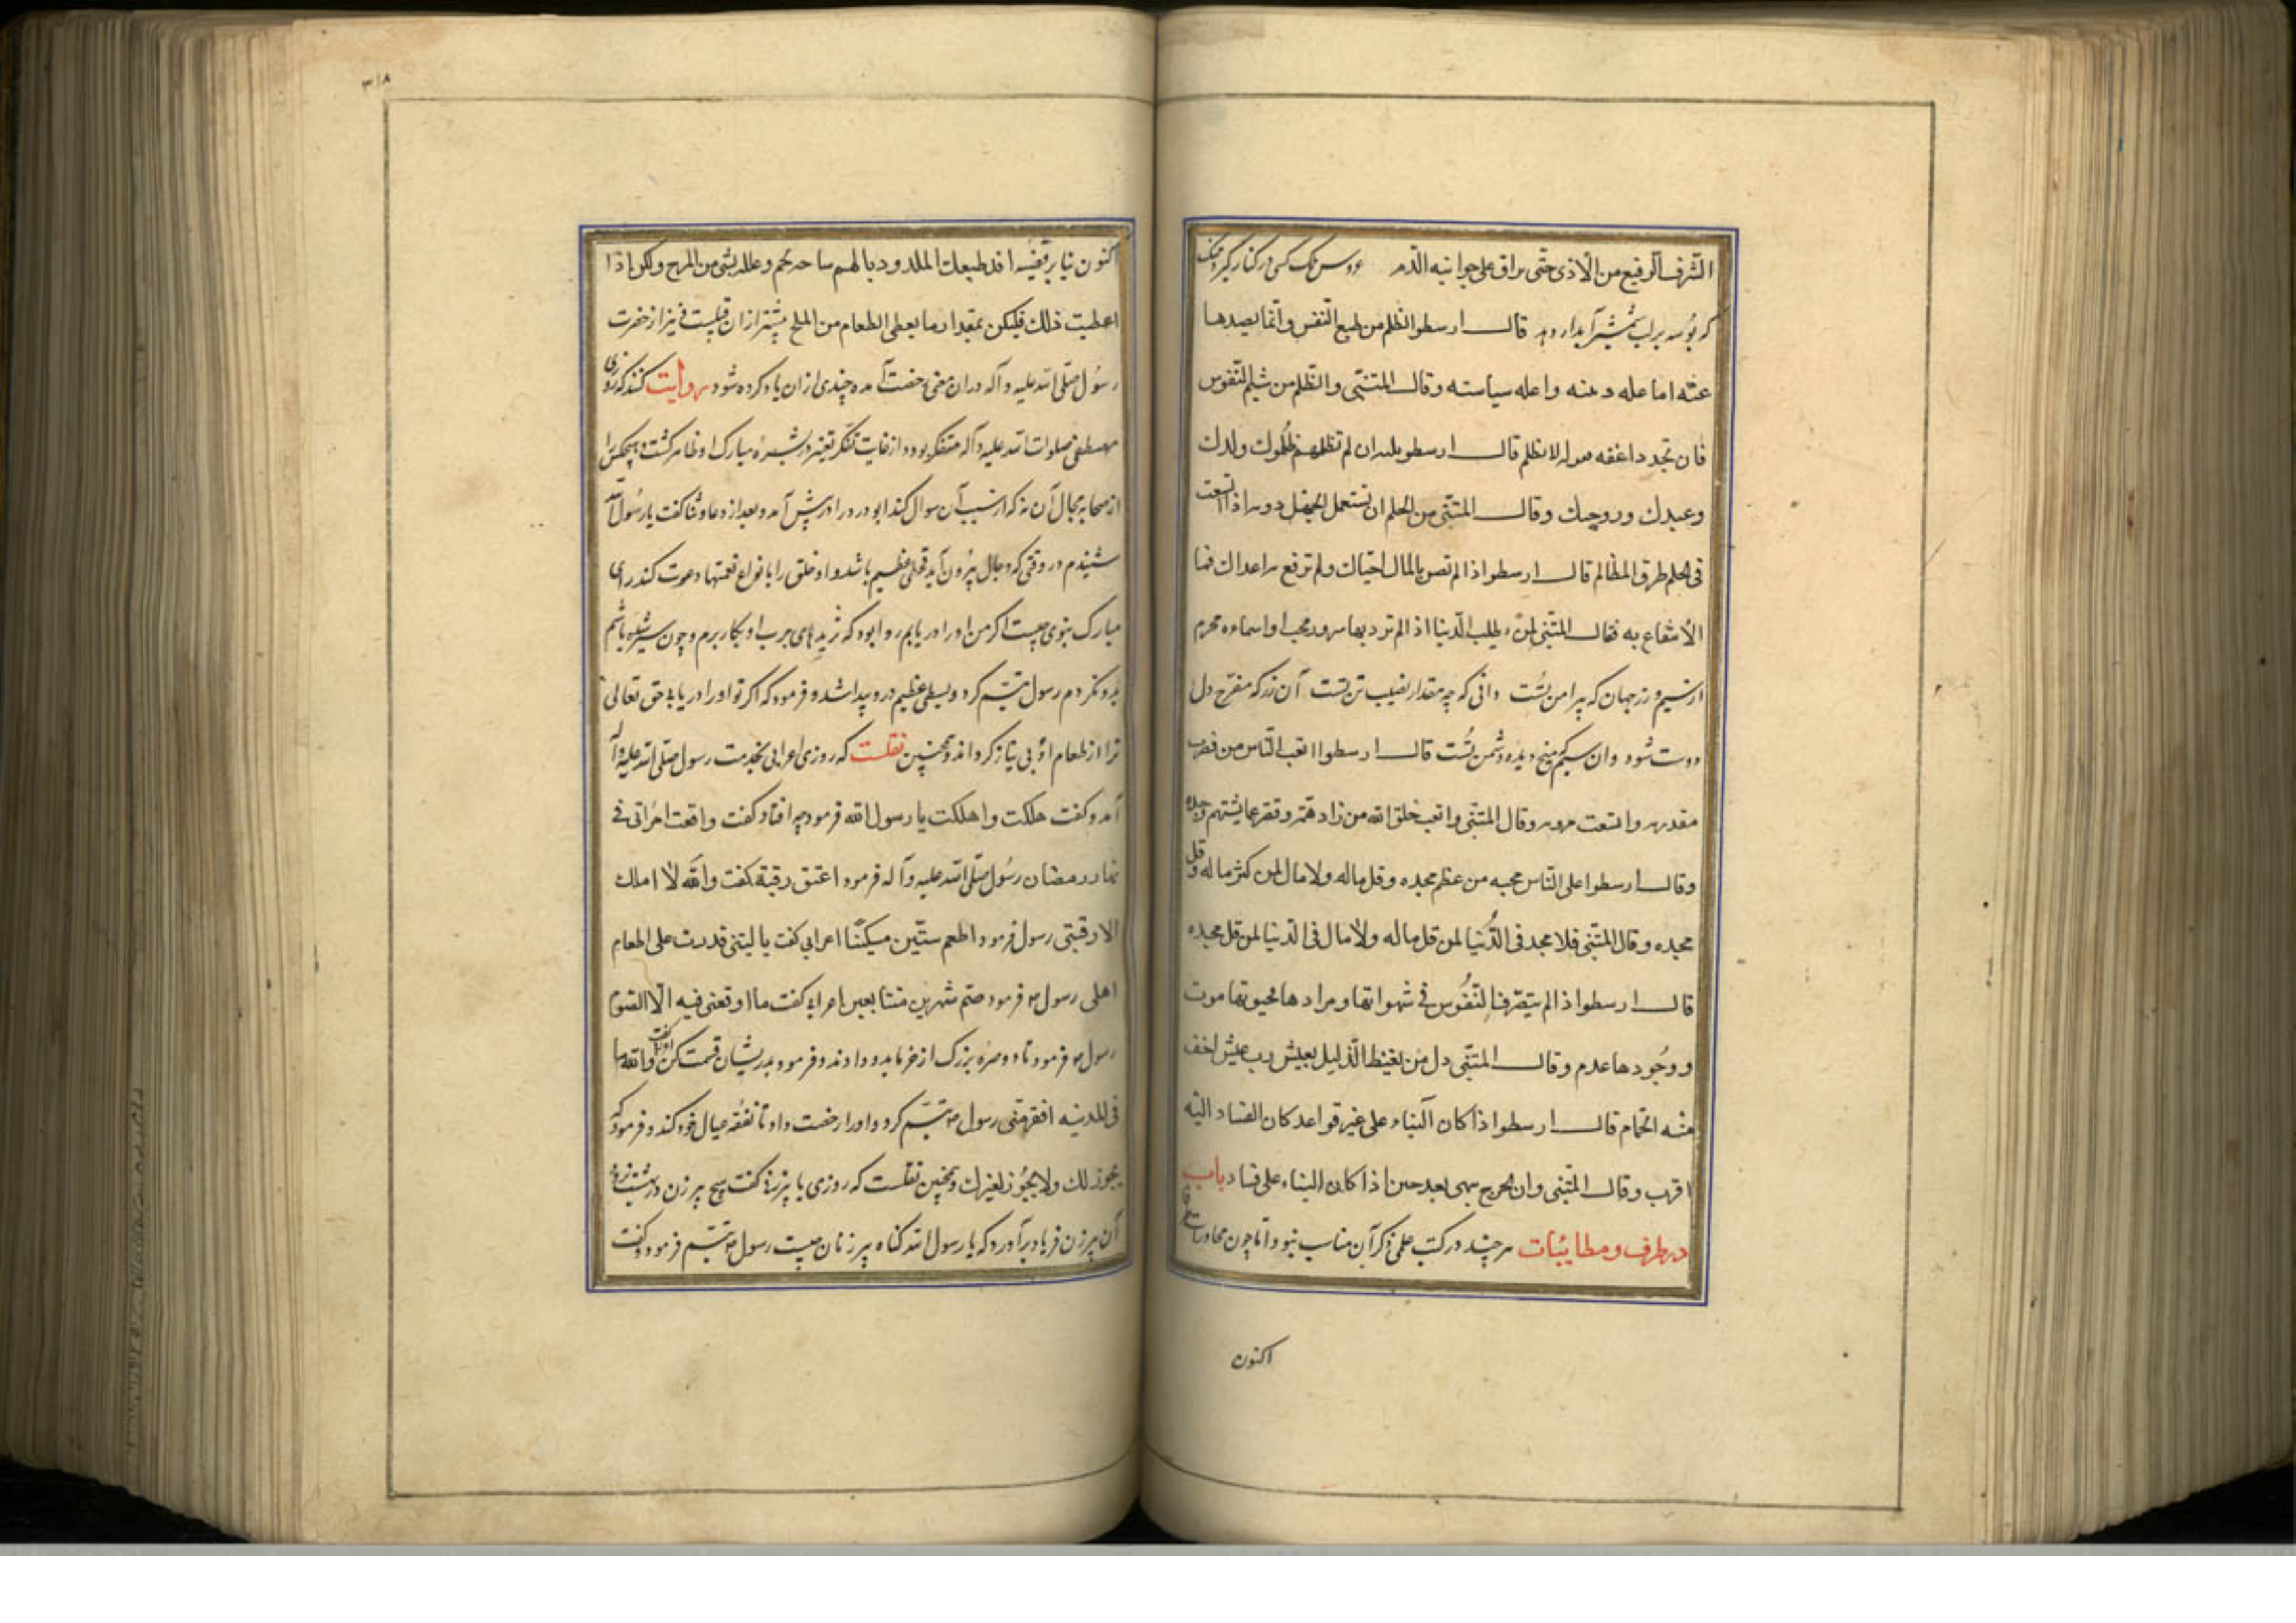 الشرف الرفيع من الاذى حتى يراق على جوانبه الدم عروس ملک کسی در کنار گیرد چنگ
که بوسه بر لب شمشیر آبدار دهد قال ارسطو الظلم من طبع النفس وانما يصدها
عنه اما عله دينه واعله سياسته وقال المتنبى والظلم من شيم النفوس
فان تجد ذاعفه لا يظلم قال ارسطو ان لم تظلمهم ظلموك ولدك
وعبدك وزوجك وقال المتنبى من الحلم ان تستعمل الجهل دونه اذا اتسعت
فى الحلم طرق المظالم قال ارسطو اذا لم تصن بالمال احبابك ولم ترفع به اعدائك فما
الانتفاع به فقال المتنبى لمن يطلب الدنيا اذا لم ترد بها سرور محب او اساءه مجرم
از سیم و زر جهان که پیرامن تست دانی که چه مقدار نصیب تن تست آن زر که مفرح دل
دوست شود وان سیم که میخ دیده دشمن تست قال ارسطو اتعب الناس من قصرت
مقدرته واتسعت مروته وقال المتنبى واتعب خلق الله من زاد همه وقصر عما يشتهى وجده
وقال ارسطو اعلى الناس محبه من عظم مجده وقل ماله ولا مال لمن كثر ماله وقل
مجده وقال المتنبى فلا مجد فى الدنيا لمن قل ماله ولا مال فى الدنيا لمن قل مجده
قال ارسطو اذا لم يتصرف النفوس فى شهواتها ومرادها فحيوتها موت
ووجودها عدم وقال المتنبى ذل من يغبط الذليل بعيش رب عيش اخف
منه الحمام قال ارسطو اذا كان البناء على غير قواعد كان الفساد اليه
اقرب وقال المتنبى وان الجرح بعد حين اذا كان البناء على فساد باب
در طرف ومطایبات هر چند در کتب علمی ذکر آن مناسب نبود اما چون محاورات
اکنون
۳۱۸
اکنون قد طبعك المكدود بالهم ساحه يجم وعلله بشئ من المزح ولكن اذا
اعطيت ذلك فليكن بمقدار ما يعطى الطعام من الملح پیشتر ازان نیز از حضرت
رسول صلی الله علیه و آله دران معنی رخصت آمده چندی ازان یاد کرده شود روایت کنند که روزی
مصطفی صلوات الله علیه و آله متفکر بود و از غایت تفکر تغیر در بشره مبارک او ظاهر گشت و هیچکس را
از صحابه مجال آن نه که از سبب آن سوال کند ابو دردا در پیش آمد و بعد از دعا و ثنا گفت یا رسول الله
شنیدم در وقتی که دجال بیرون آید قحطی عظیم باشد و او خلق را بانواع نعمتها دعوت کند رای
مبارک نبوی چیست اگر من او را دریابم روا بود که ثریدهای چرب او بکار برم و چون سیر شده باشم
بدو نگروم رسول تبسم کرد و بسطی عظیم درو پیدا شد و فرمود که اگر تو او را دریابی حق تعالی
ترا از طعام او بی نیاز گرداند و همچنین نقلست که روزی اعرابی بخدمت رسول صلی الله علیه و آله
آمد و گفت هلكت واهلكت يا رسول الله فرمود چه افتاد گفت واقعت امراتى فى
نهار رمضان رسول صلی الله علیه و آله فرمود اعتق رقبة گفت والله لا املك
الا رقبتى رسول فرمود اطعم ستين مسكينا اعرابی گفت يا ليتنى قدرت على اطعام
اهلى رسول فرمود صم شهرين متتابعين اعرابی گفت ما اوقعنى فيه الا الصوم
رسول فرمود تا دو صره بزرگ از خرما بدو دادند و فرمود بدرویشان قسمت کن او گفت والله ما
فى المدينه افقر منى رسول تبسم کرد و او را رخصت داد تا نفقه عیال خود کند و فرمود که
يجوز لك ولا يجوز لغيرك و همچنین نقلست که روزی با پیر زنی گفت هیچ پیر زن در بهشت نرود
آن پیر زن فریاد برآورد که یا رسول الله گناه پیر زنان چیست رسول تبسم فرمود و گفت